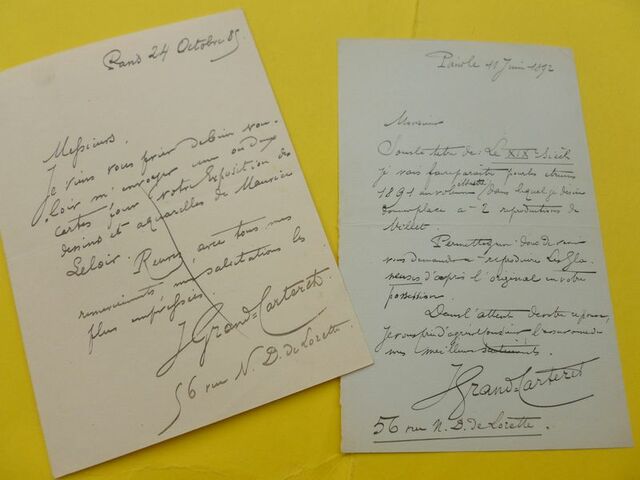 Paris 24 Octobre 85
Messieurs,
Je viens vous prier de bien vou-
loir m'envoyer un ou deux
cartes pour votre Exposition de
dessins et aquarelles de Maurice
Leloir. Recevez, avec tous mes
remerciements mes salutations les
plus empressées.
J Grand-Carteret
56 rue N. D. de Lorette
Paris le 11 Juin 1892
Monsieur
Sous le titre de: Le XIX Siècle
je vais faire paraître pour les étrennes
1894 un volume illustré dans lequel je désire
donner place a 2 reproductions de
Millet.
Permettez moi donc de venir
vous demander a reproduire Les Gla-
neuses d'après l'original en votre
possession.
Dans l'attente de votre réponse,
je vous prie d'agréer Monsieur l'assurance de
mes meilleurs sentiments.
J Grand-Carteret
56 rue N. D. de Lorette.